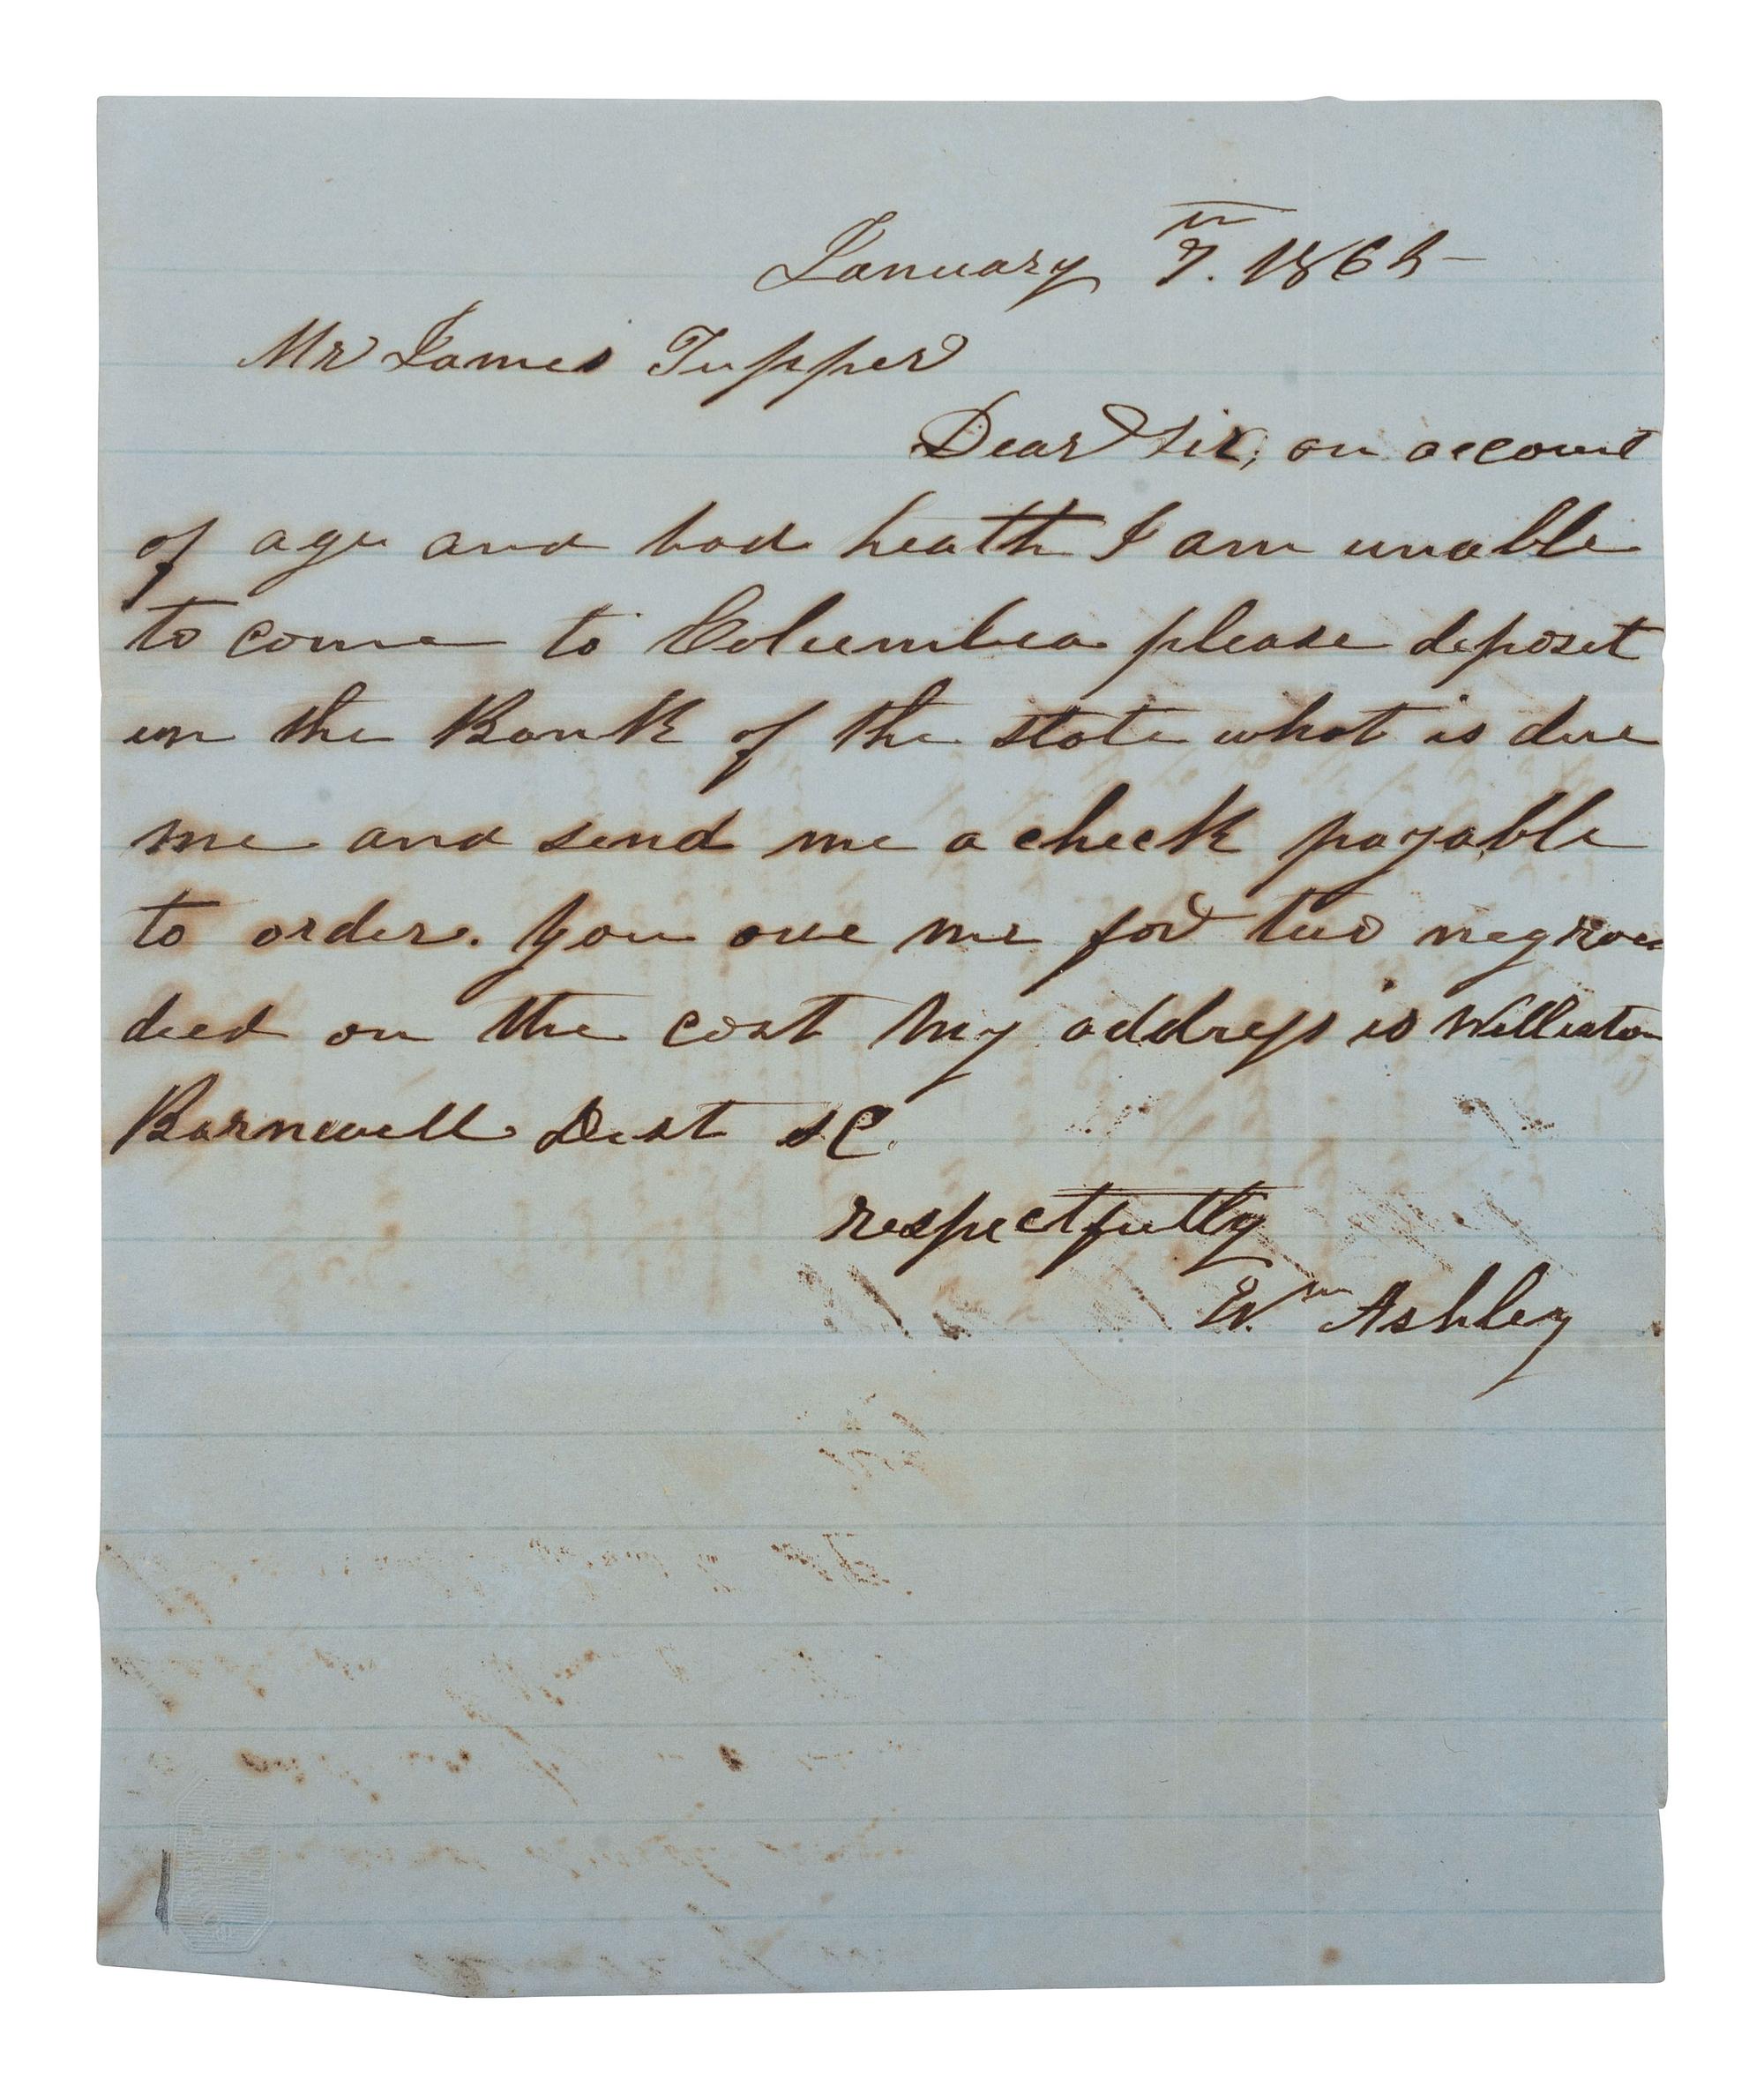 January 7th. 1865
Mr James Tupper
Dear Sir; on account
of age and bad heath I am unable
to come to Columbia please deposit
in the Bank of the state what is due
me and send me a check payable
to order. you owe me for two negroes
died on the cost My address is Williston
Barnwell Dist SC.
respectfully
Wm Ashley